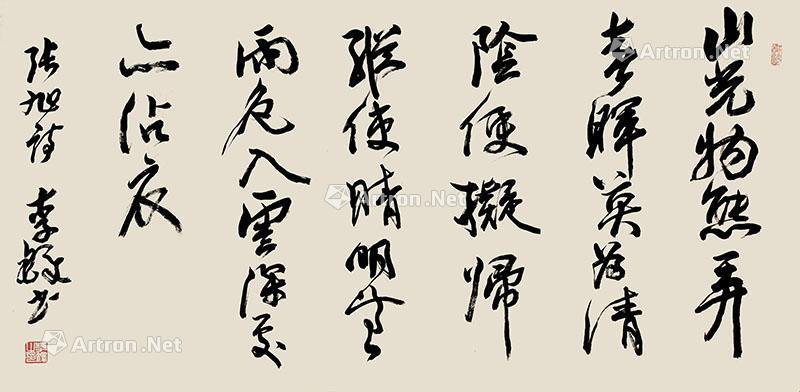 山光物態弄
春暉莫為清
陰便擬歸
縱使晴明無
雨色入雲深處
亦沾衣
張旭詩 李 書
Artron.Net
Artron.Net
Artron.Net
Artron.Net
Artron.Net
Artron.Net
Artron.Net